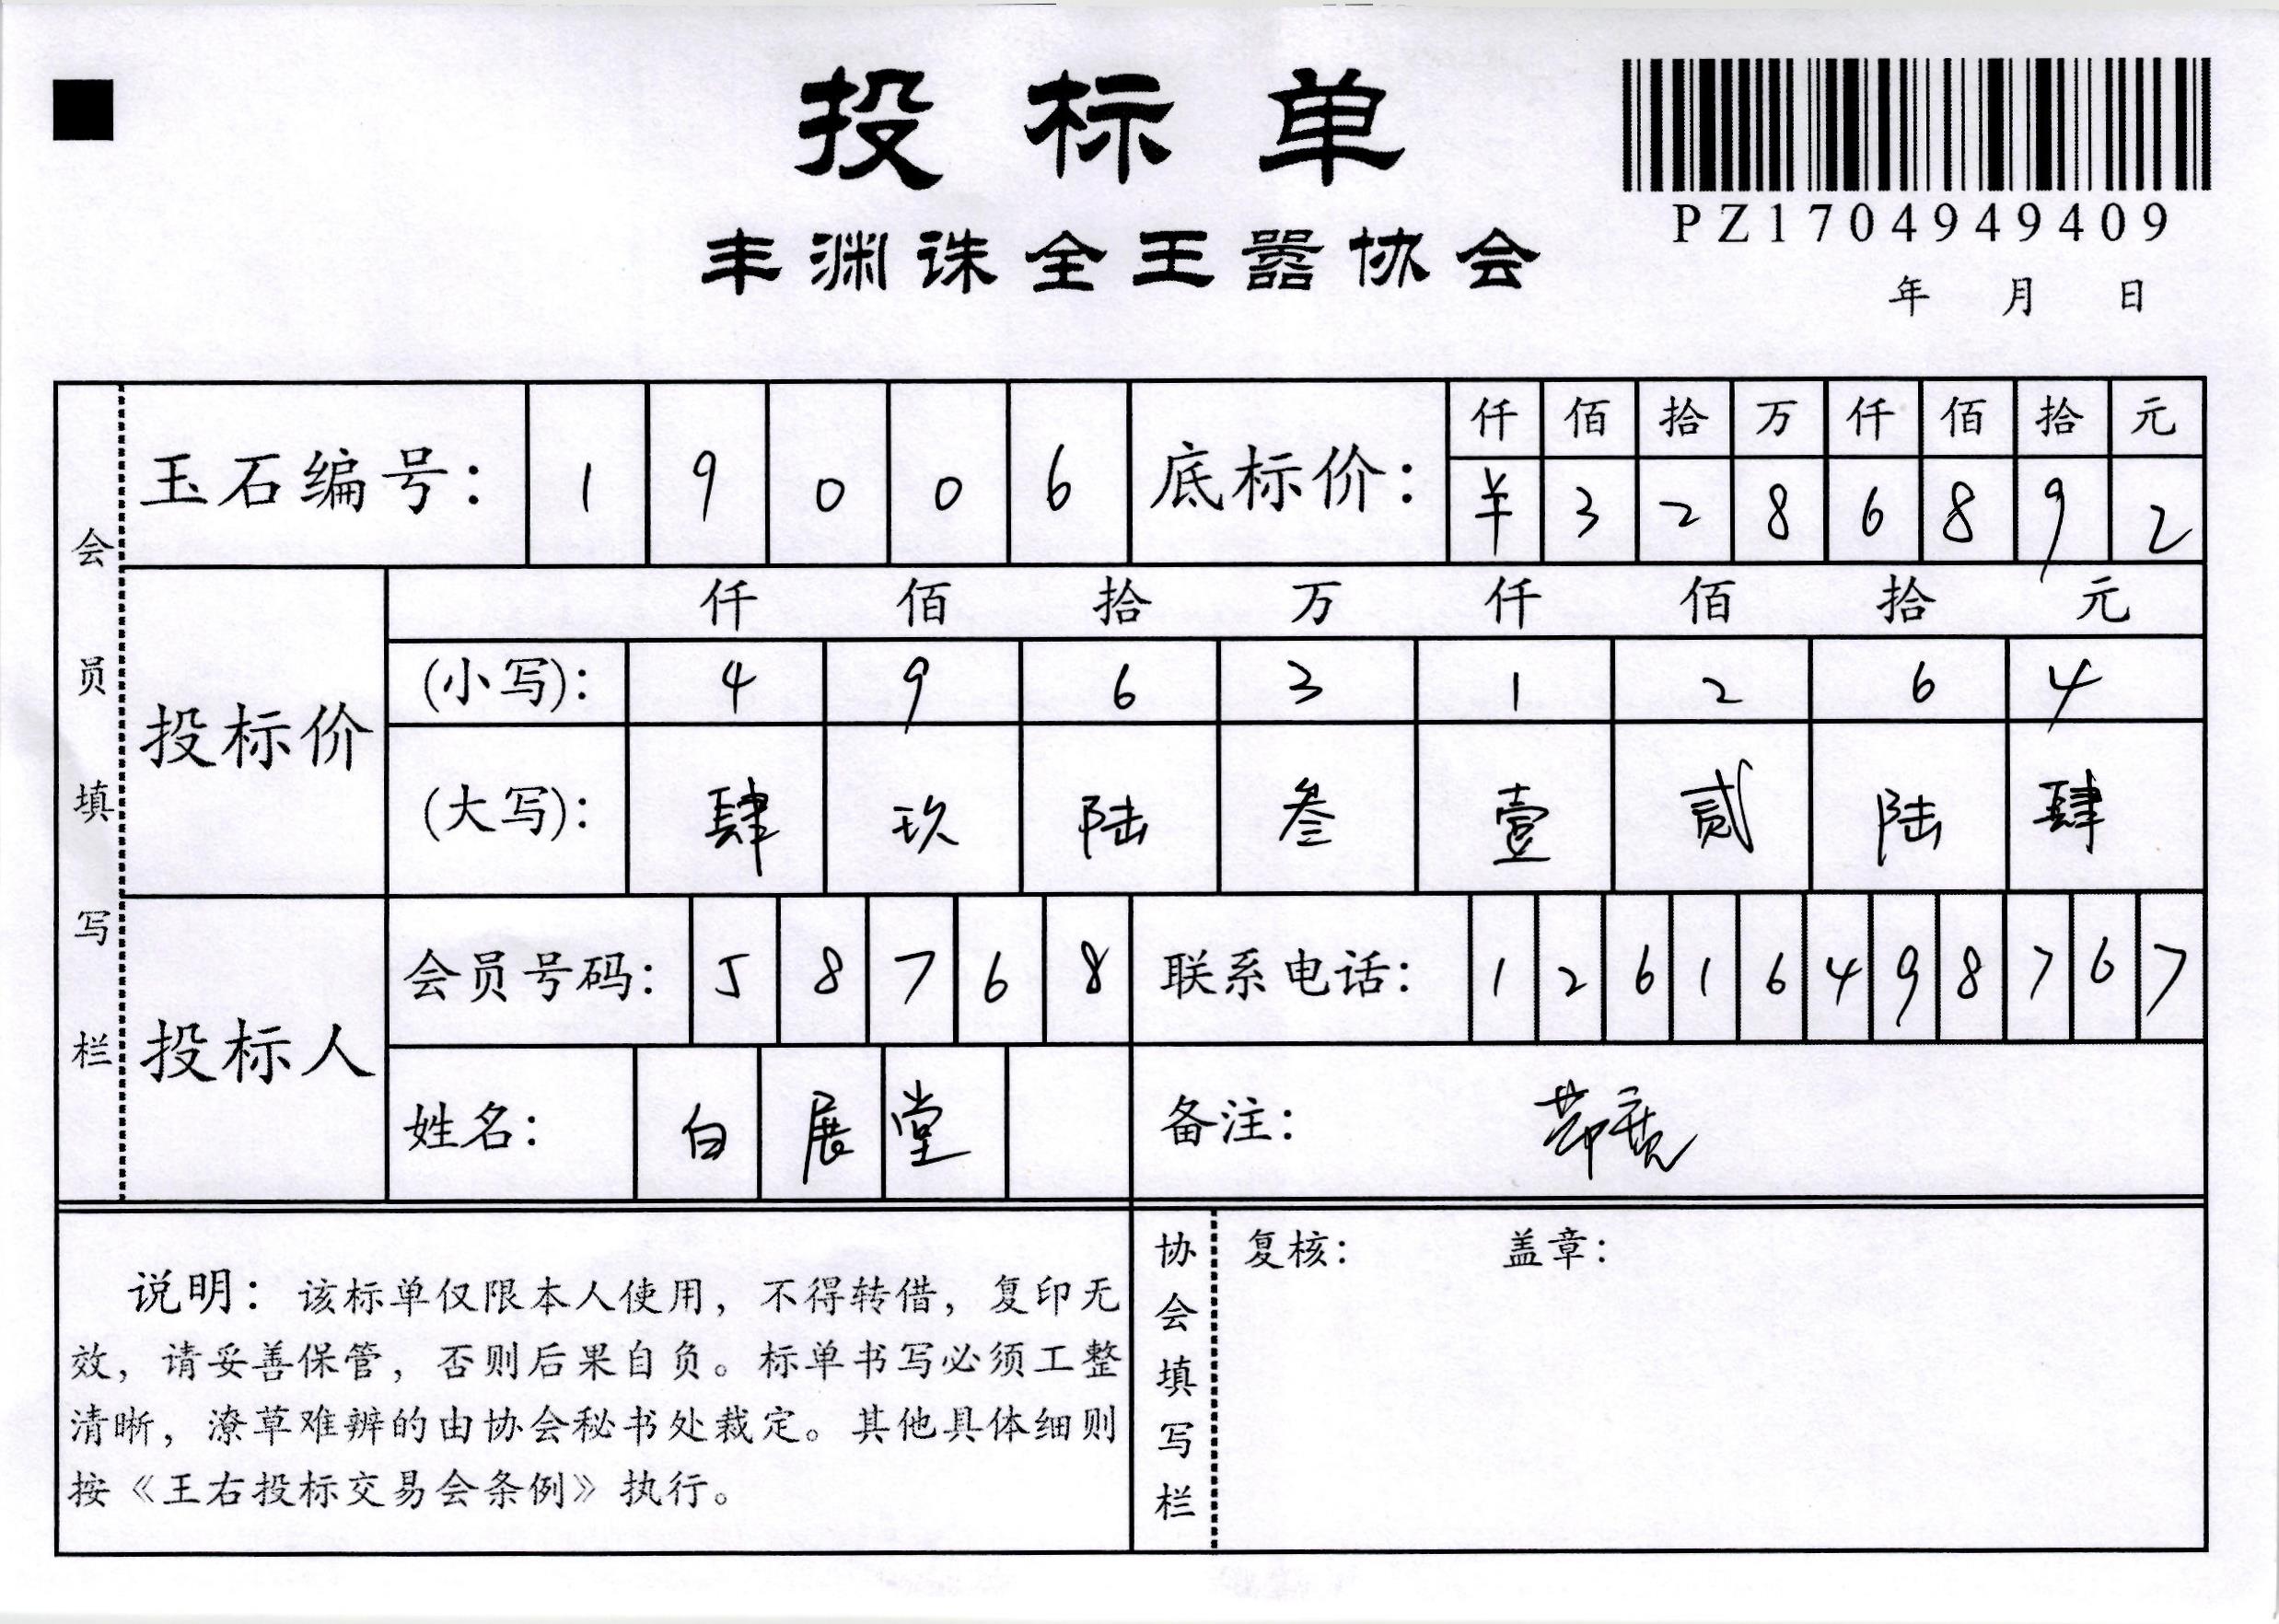 投标单
PZ1704949409
丰渊诛全王嚣协会
年 月 日
会员填写栏
玉石编号： 1 9 0 0 6
底标价： 仟 佰 拾 万 仟 佰 拾 元
¥ 3 2 8 6 8 9 2
投标价
仟 佰 拾 万 仟 佰 拾 元
(小写)： 4 9 6 3 1 2 6 4
(大写)： 肆 玖 陆 叁 壹 贰 陆 肆
投标人
会员号码： 5 8 7 6 8
联系电话： 1 2 6 1 6 4 9 8 7 6 7
姓名： 白 展 堂
备注：
说明：该标单仅限本人使用，不得转借，复印无
效，请妥善保管，否则后果自负。标单书写必须工整
清晰，潦草难辨的由协会秘书处裁定。其他具体细则
按《王右投标交易会条例》执行。
协会填写栏
复核： 盖章：